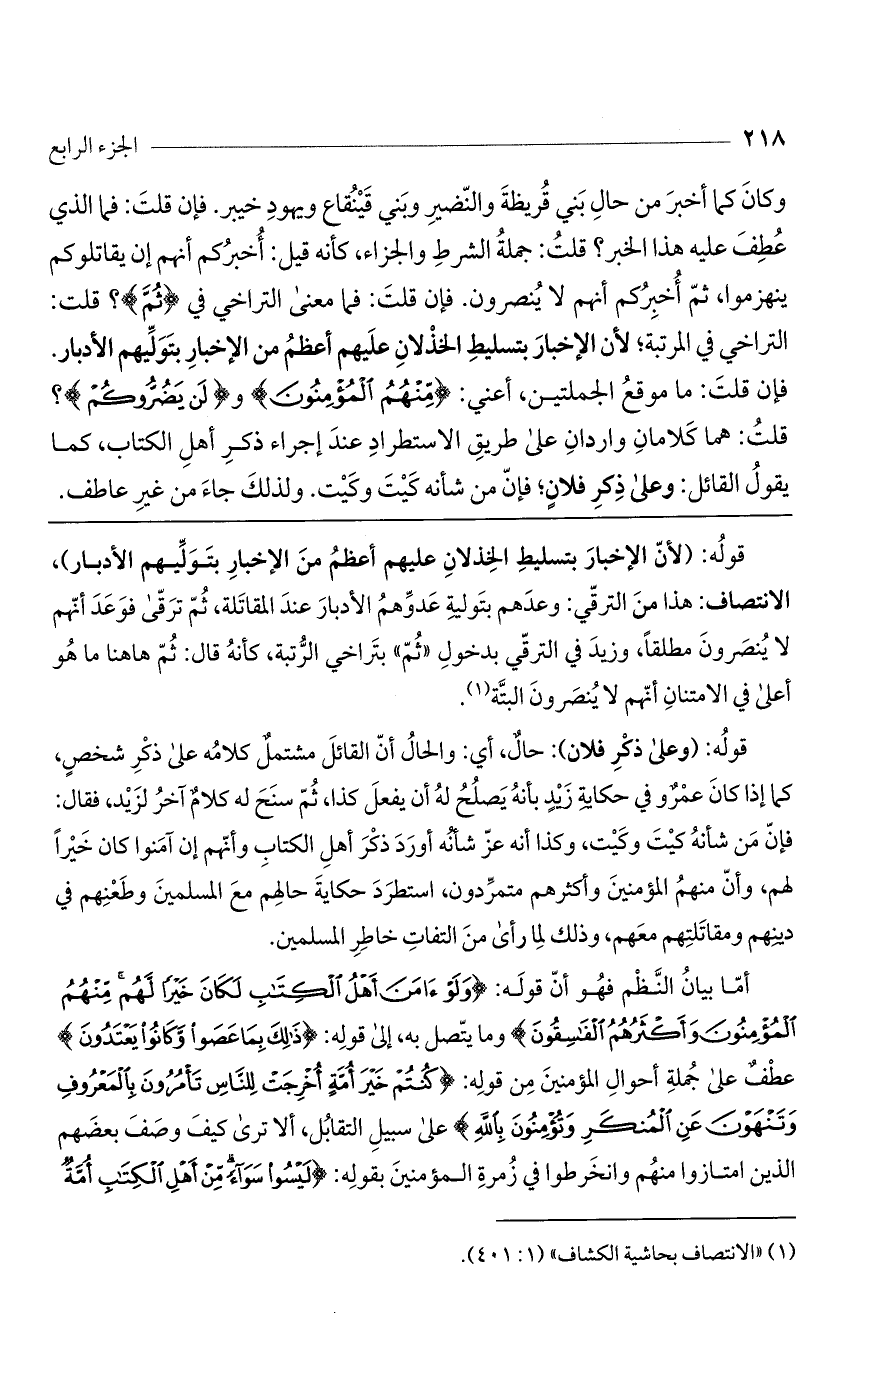 ٢١٨ الجزء الرابع
وكانَ كما أخبرَ من حالِ بَني قُريظةَ والنّضيرِ وبَني قَيْنُقاع ويهودِ خيبر. فإن قلتَ: فما الذي
عُطِفَ عليه هذا الخبر؟ قلتُ: جملةُ الشرطِ والجزاء، كأنه قيل: أُخبرُكم أنهم إن يقاتلوكم
ينهزموا، ثمّ أُخبِرُكم أنهم لا يُنصرون. فإن قلتَ: فما معنىٰ التراخي في ﴿ثُمَّ﴾؟ قلت:
التراخي في المرتبة؛ لأن الإخبارَ بتسليطِ الخذْلانِ علَيهم أعظمُ من الإخبارِ بتَولِّيهم الأدبار.
فإن قلتَ: ما موقعُ الجملتيـن، أعني: ﴿مِّنْهُمُ ٱلْمُؤْمِنُونَ﴾ و﴿لَن يَضُرُّوكُمْ﴾؟
قلتُ: هما كَلامانِ واردانِ علىٰ طريقِ الاستطرادِ عندَ إجراء ذكـرِ أهلِ الكتاب، كمـا
يقولُ القائل: وعلىٰ ذِكرِ فلانٍ؛ فإنّ من شأنه كَيْتَ وكَيْت. ولذلكَ جاءَ من غيرِ عاطف.
قولُه: (لأنّ الإخبارَ بتسليطِ الخِذلانِ عليهم أعظمُ منَ الإخبارِ بتَـولِّيـهم الأدبـار)،
الانتصاف: هذا منَ الترقّي: وعدَهم بتَوليةِ عَدوِّهمُ الأدبارَ عندَ المقاتَلة، ثُمّ ترَقّىٰ فوَعَدَ أنّهم
لا يُنصَرونَ مطلقاً، وزيدَ في الترقّي بدخولِ «ثُمّ» بتَراخي الرُّتبة، كأنهُ قال: ثُمّ هاهنا ما هُو
أعلىٰ في الامتنانِ أنّهم لا يُنصَرونَ البتَّة(١).
قولُه: (وعلىٰ ذكْرِ فلان): حالٌ، أي: والحالُ أنّ القائلَ مشتملٌ كلامُه علىٰ ذكْرِ شخصٍ،
كما إذا كانَ عمْرٌو في حكايةِ زَيْدٍ بأنهُ يَصلُحُ لهُ أن يفعلَ كذا، ثُمّ سنَحَ له كلامٌ آخرُ لزَيْد، فقال:
فإنّ مَن شأنهُ كيْتَ وكَيْت، وكذا أنه عزّ شأنُه أورَدَ ذكْرَ أهلِ الكتابِ وأنّهم إن آمَنوا كان خَيْراً
لهم، وأنّ منهمُ المؤمنينَ وأكثرهم متمرِّدون، استطرَدَ حكايةَ حالِهم معَ المسلمينَ وطَعْنِهم في
دينِهم ومقاتَلتِهم معَهم، وذلك لِما رأىٰ منَ التفاتِ خاطرِ المسلمين.
أمّـا بيانُ النَّـظْم فهُـو أنّ قولَـه: ﴿وَلَوْ ءَامَنَ أَهْلُ ٱلْكِتَٰبِ لَكَانَ خَيْرًا لَّهُم ۚ مِّنْهُمُ
ٱلْمُؤْمِنُونَ وَأَكْثَرُهُمُ ٱلْفَٰسِقُونَ﴾ وما يتّصل به، إلىٰ قولِه: ﴿ذَٰلِكَ بِمَا عَصَوا وَّكَانُوا۟ يَعْتَدُونَ﴾
عطفٌ علىٰ جُملةِ أحوالِ المؤمنينَ مِن قولِه: ﴿كُنتُمْ خَيْرَ أُمَّةٍ أُخْرِجَتْ لِلنَّاسِ تَأْمُرُونَ بِٱلْمَعْرُوفِ
وَتَنْهَوْنَ عَنِ ٱلْمُنكَرِ وَتُؤْمِنُونَ بِٱللَّهِ﴾ علىٰ سبيلِ التقابُل، ألا ترىٰ كيفَ وصَفَ بعضَهم
الذين امتـازوا منهُم وانخَرطوا في زُمرةِ الـمؤمنينَ بقولِه: ﴿لَيْسُوا۟ سَوَآءً ۗ مِّنْ أَهْلِ ٱلْكِتَٰبِ أُمَّةٌ
(١) «الانتصاف بحاشية الكشاف» (١: ٤٠١).